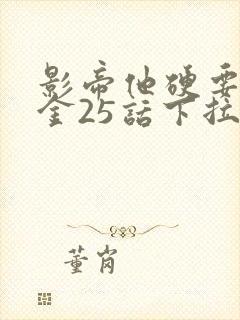 影帝他硬要
全25話下拉
董肖